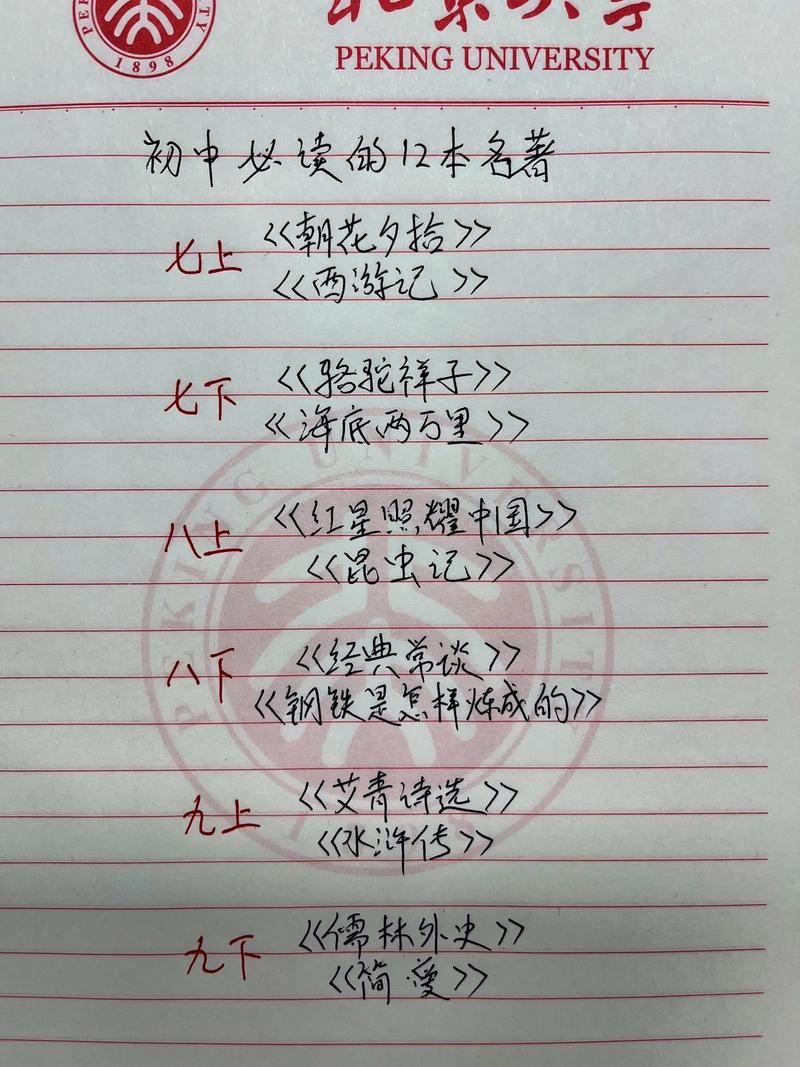 北京大学
PEKING UNIVERSITY
1898
初中必读的12本名著
七上 <<朝花夕拾>>
<<西游记>>
七下 <<骆驼祥子>>
<<海底两万里>>
八上 <<红星照耀中国>>
<<昆虫记>>
八下 <<经典常谈>>
<<钢铁是怎样炼成的>>
九上 <<艾青诗选>>
<<水浒传>>
九下 <<儒林外史>>
<<简爱>>
PEKING UNIVERSITY